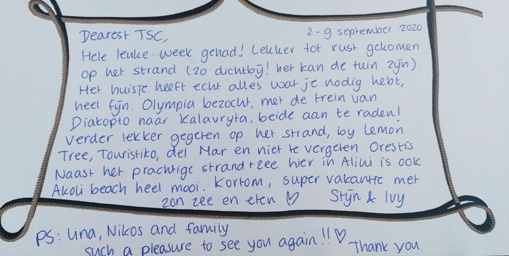 Dearest TSC, 2-9 september 2020
Hele leuke week gehad! Lekker tot rust gekomen
op het strand (zo dichtbij! het kan de tuin zijn).
Het huisje heeft echt alles wat je nodig hebt,
heel fijn. Olympia bezocht, met de trein van
Diakopto naar Kalavryta, beide aan te raden!
Verder lekker gegeten op het strand, by Lemon
Tree, Touristiko, del Mar en niet te vergeten Orestis
Naast het prachtige strand+zee hier in Aliki is ook
Akoli beach heel mooi. Kortom, super vakantie met
zon zee en eten ♡ Stijn & Ivy
PS: Una, Nikos and family
such a pleasure to see you again!!♡ Thank you